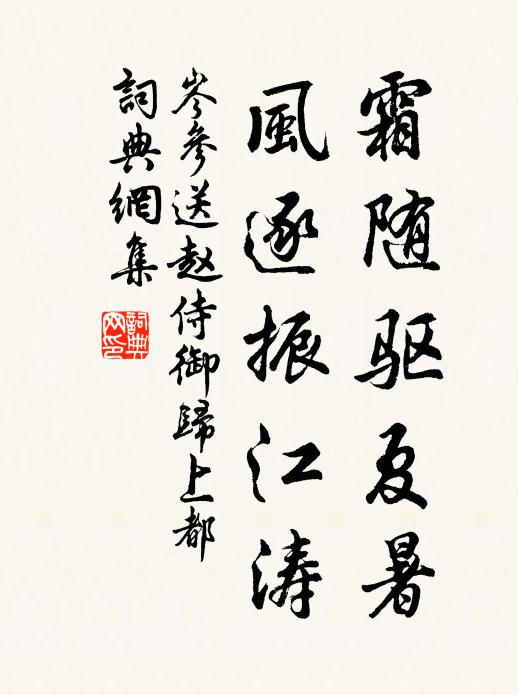 霜随驱夏暑
風逐振江涛
岑參送赵侍御歸上都
詞典網集
詞典
网印